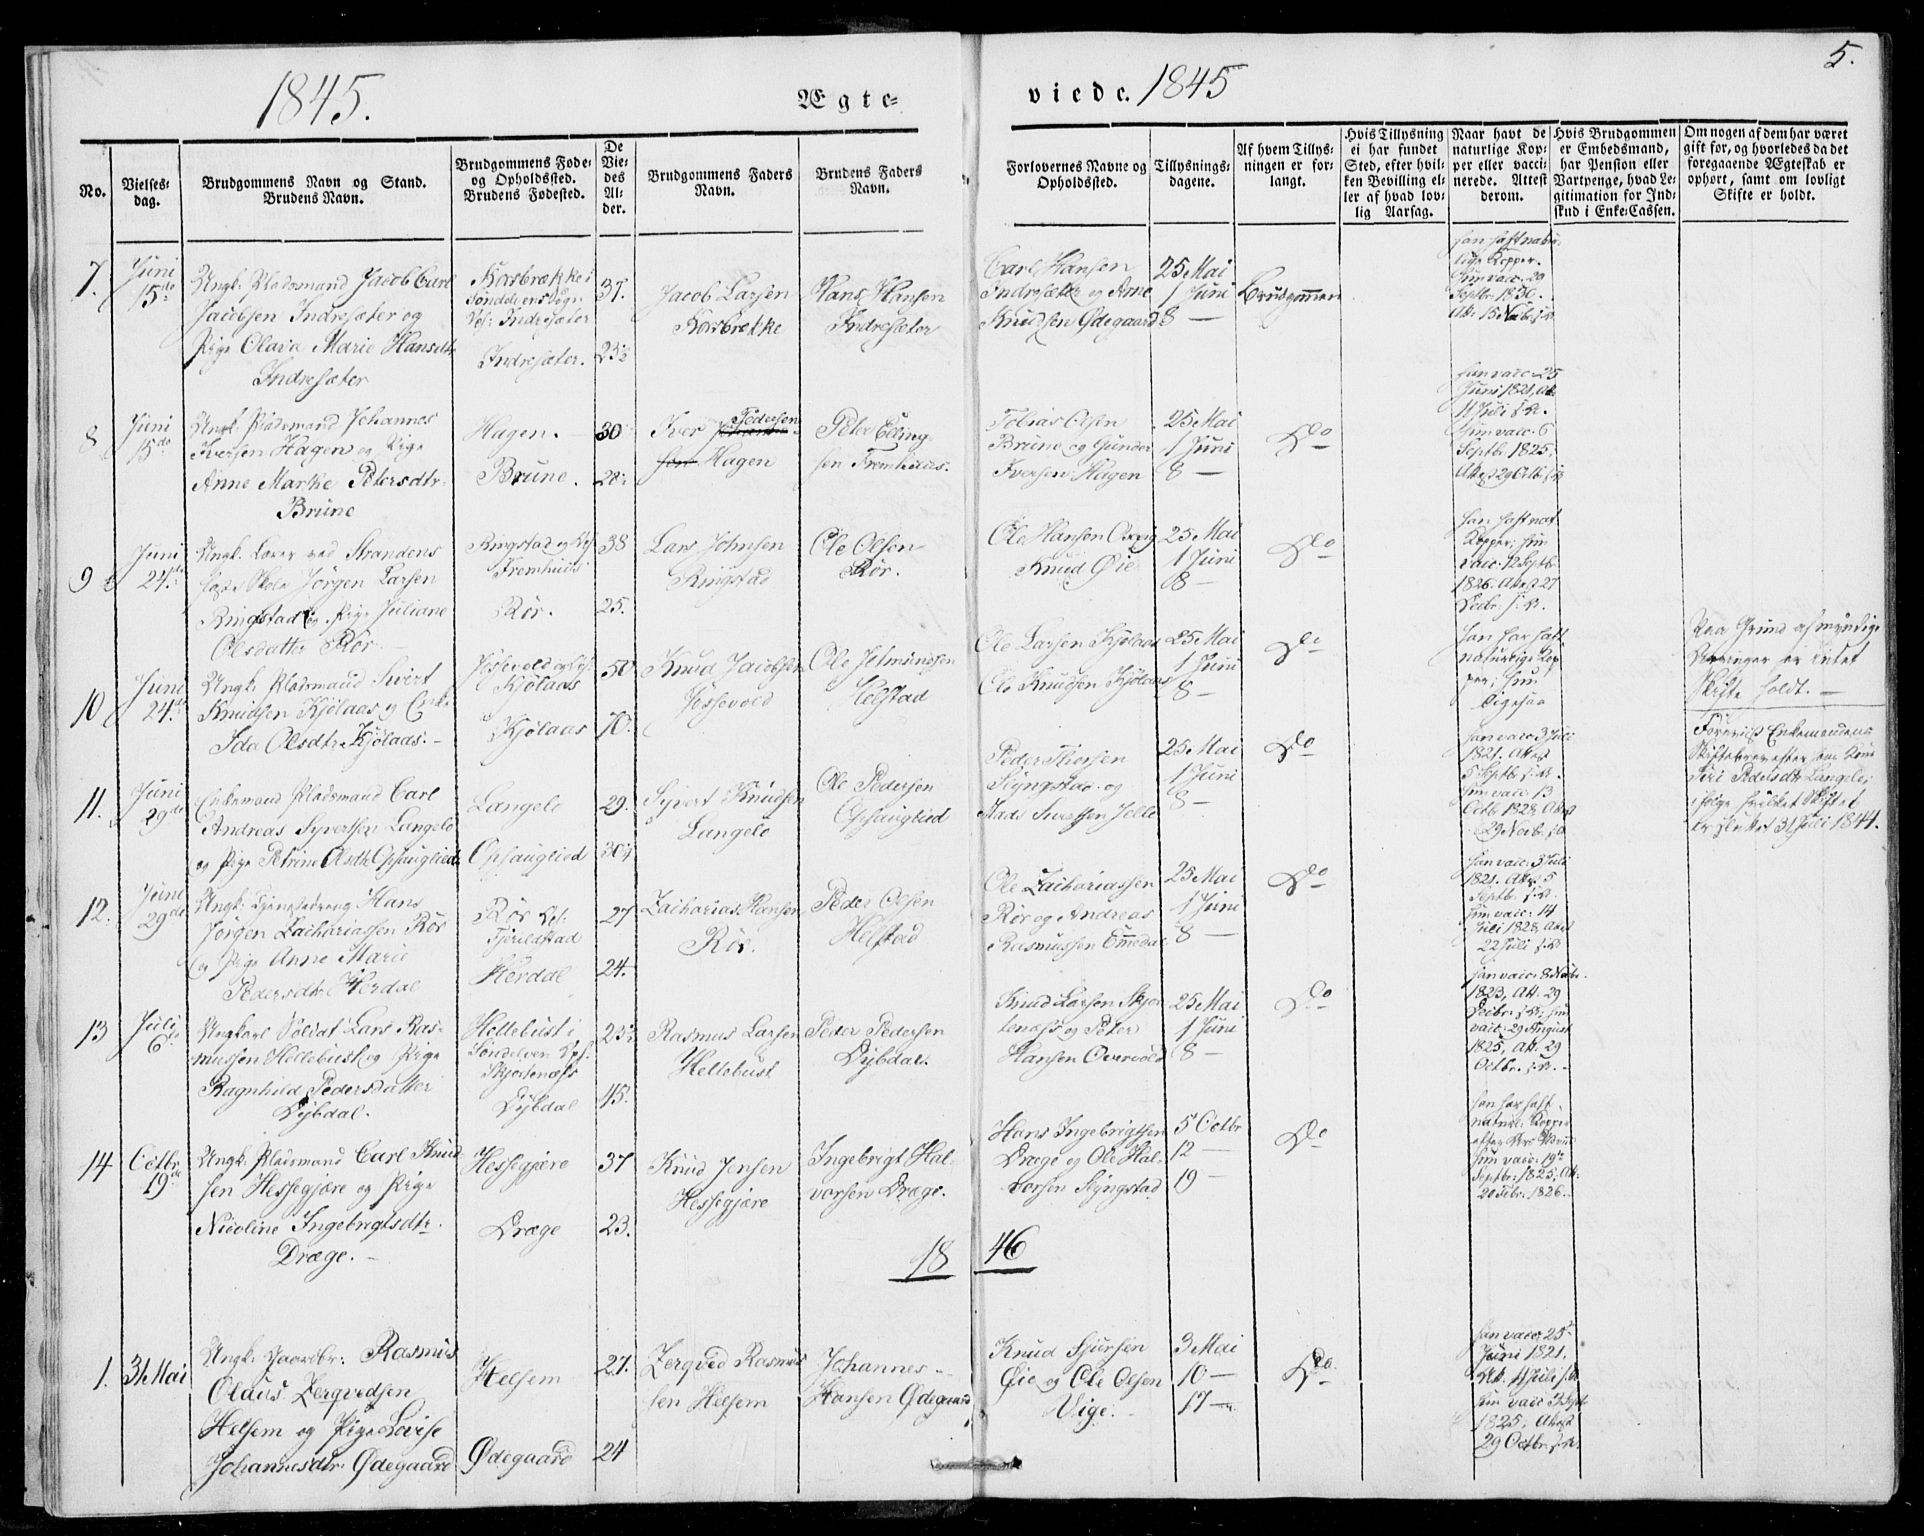 1845.
Ægte-
viede.
1845
5.
No.
Vielses-
dag.
Brudgommens Navn og Stand.
Brudens Navn.
Brudgommens Føde-
og Opholdssted.
Brudens Fødested.
De
Vie-
des
Al-
der.
Brudgommens Faders
Navn.
Brudens Faders
Navn.
Forlovernes Navne og
Opholdssted.
Tillysnings-
dagene.
Af hvem Tillys-
ningen er for-
langt.
Hvis Tillysning
ei har fundet
Sted, efter hvil-
ken Bevilling el-
ler af hvad lov-
lig Aarsag.
Naar havt de
naturlige Kop-
per eller vacci-
nerede. Attest
derom.
Hvis Brudgommen
er Embedsmand,
har Pension eller
Vartpenge, hvad Le-
gitimation for Ind-
skud i Enke-Cassen.
Om nogen af dem har været
gift for, og hvorledes da det
foregaaende Ægteskab er
ophørt, samt om lovligt
Skifte er holdt.
7.
Juni
15de
Ungk: Pladsmand Jacob Carl
Jacobsen Indresæter og
Pige Olava Marie Hansdtr
Indresæter
Korsbrække i
Søndelvens Sogn
Indresæter
Indresæter.
37.
23½
Jacob Larsen
Korsbrække
Hans Hansen
Indresæter
Carl Hansen
Indresætr og Arne
Knudsen Ødegaard
25 Mai
1 Juni
8 —
Brudgommen
han haft natur-
lige Kopper.
Hun vacc. 20
Septbr 1830.
8
Juni
15de
Ungk. Pladsmand Johannes
Iversen Hagen og Pige
Anne Marthe Petersdtr
Brune
Hagen. —
Brune.
30
28
Iver Pedersen
Hagen
Peter Elling-
sen Fremhuus.
Tobias Olsen
Brune og Gunder
Iversen Hagen
25 Mai
1 Juni
8 —
Do
han vacc. 25
Juni 1821, Att.
11 Juli s.A.
Hun vacc. 6
Septb. 1825.
Attest 29 Octb. s.A.
9
Juni
24de
Ungk. Lærer ved Strandens
faste Skole Jørgen Larsen
Ringstad og Pige Juliane
Olsdatter Rør
Ringstad
Fremhuus
Rør.
38
25.
Lars Johnsen
Ringstad
Ole Olsen
Rør.
Ole Hansen
Knud Øie
25 Mai
1 Juni
8 —
Do
han haft nat.
Kopper; hun
vacc. 12 Septb.
1826. Attest 27
Decbr. s.A.
10
Juni
24de
Ungk. Pladsmand Sivert
Knudsen Kjølaas og Enke
Ida Olsdtr Kjølaas. —
Kjølaas
Kjølaas
50
70.
Knud Jacobsen
Jossevold
Ole Jetmundsen
Helstad
Ole Larsen Kjølaas
Ole Knudsen Kjølaas
25 Mai
1 Juni
8 —
Do
han har haft
naturlige Kop-
per; hun
ligesaa
Paa Grund af myndige
Arvinger er intet
Skifte holdt. —
11.
Juni
29de
Enkemand Pladsmand Carl
Andreas Syvertsen Langelo
og Pige Petrine Olsdtr Ophauglied
Langelo
Ophauglied
29.
30¼
Syvert Knudsen
Langelo
Ole Pedersen
Ophauglied
Peder Thorsen
Slyngstad og
Mads Sivertsen Jelle
25 Mai
1 Juni
8 —
Do
han vacc 3 Juli
1821. Attest
5 Septb s.A.
hun vacc. 13
Octb 1828 Attest
29 Novb. s.A.
Forevist Enkemandens
Skiftebrev efter hans Kone
Siri Pedersdtr Langelo;
ifølge hvilket Skiftet
er sluttet 31 Juli 1844.
12.
Juni
29de
Ungk. Tjenestedreng Hans
Jørgen Zachariassen Rør
og Pige Anne Marie
Pedersdtr Herdal
Rør
Fjerildstad
Herdal
27
24.
Zacharias Hansen
Rør.
Peder Olsen
Helstad
Ole Zachariassen
Rør og Andreas
Rasmussen
25 Mai
1 Juni
8 —
Do
han vacc: 3 Juli
1821. Att. 5
Septb. s.A.
hun vacc: 14
Juli 1828 Attest
22 Juli s.A.
13
Juli
6te
Ungkarl Soldat Lars Ras-
mussen Hellebust og Pige
Ragnhild Pedersdatter
Dybdal.
Hellebust i
Søndelven
Skjortenæss
Dybdal
23½
45.
Rasmus Larsen
Hellebust
Peder Pedersen
Dybdal.
Knud Larsen Skjor-
tenæss og Peter
Hansen Overvold
25 Mai
1 Juni
8 —
Do
han vacc. 8 Novbr.
1823, Att. 29
Decbr. s.A; hun
vacc. 29 August
1825, Att. 29
Octbr. s.A. -
14
Octbr
19de
Ungk. Pladsmand Carl Knud-
sen Hessegjære og Pige
Nicoline Ingebrigtsdtr
Dræge. —
Hessegjære
Dræge
37
23.
Knud Jensen
Hessegjære
Ingebrigt Hal-
vorsen Dræge.
Hans Ingebrigtsen
Dræge og Ole Hal-
vorsen Slyngstad
5 Octbr
12 —
19 —
Do
han har haft
naturl. Kopper
hun vacc. 19de
Septbr. 1825, Att.
20 Febr. 1826.
18 46
1.
31 Mai
Ungk. Gaardbr: Rasmus
Olaus Zergvedsen
Helsem og Pige Lovise
Johannesdtr Ødegaard
Helsem
Ødegaard
27.
24
Zergved Rasmus-
sen Helsem
Johannes
Hansen Ødegaard
Knud Sjursen
Øie og Ole Olsen
Vige.
3 Mai
10 —
17 —
Do
han vacc. 25
Juni 1821.
Att. 11 Juli s.A.
hun vacc 3 Sept
1825. Attest
29 Octbr. s.A.